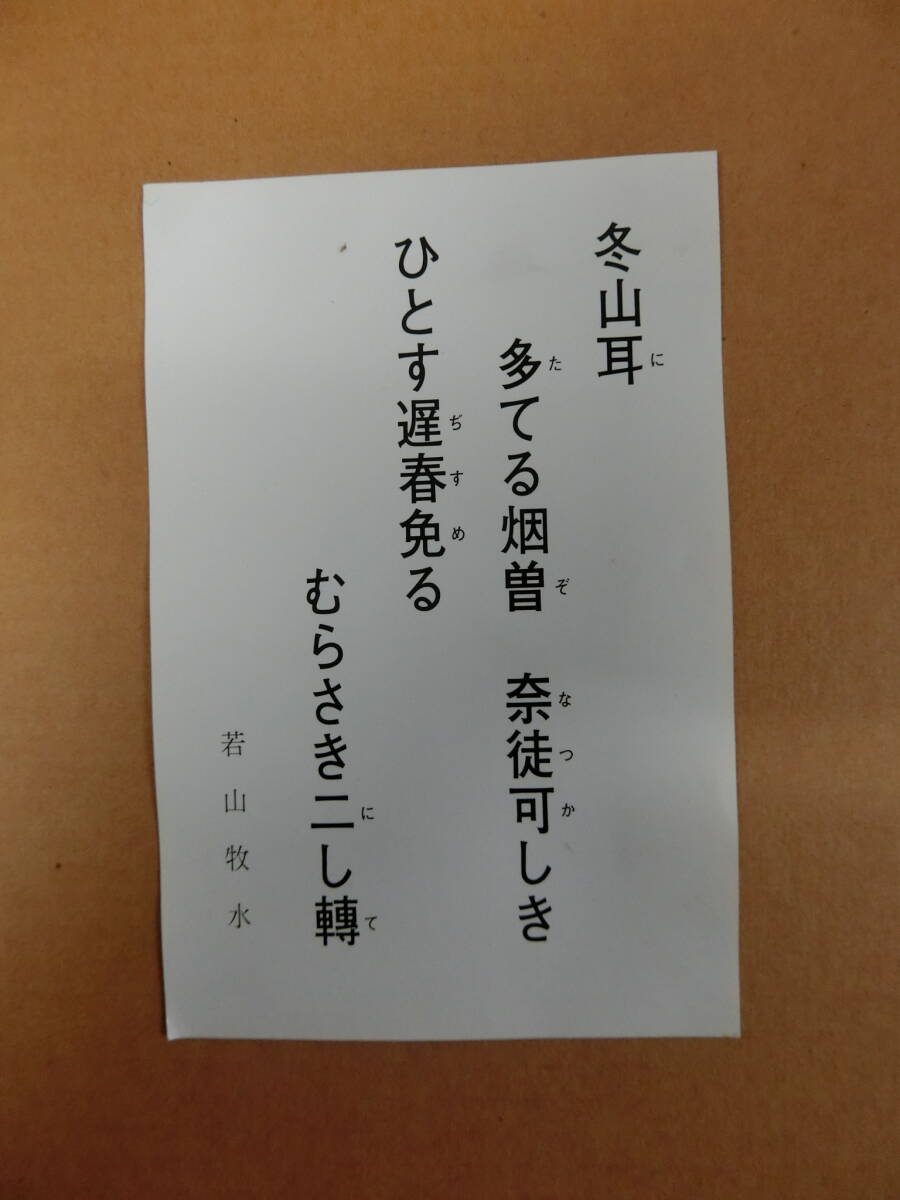 冬山耳に
多たてる烟曽ぞ　奈な徒つ可かしき
ひとす遅ぢ春す免める
むらさき二にし轉て
若山牧水